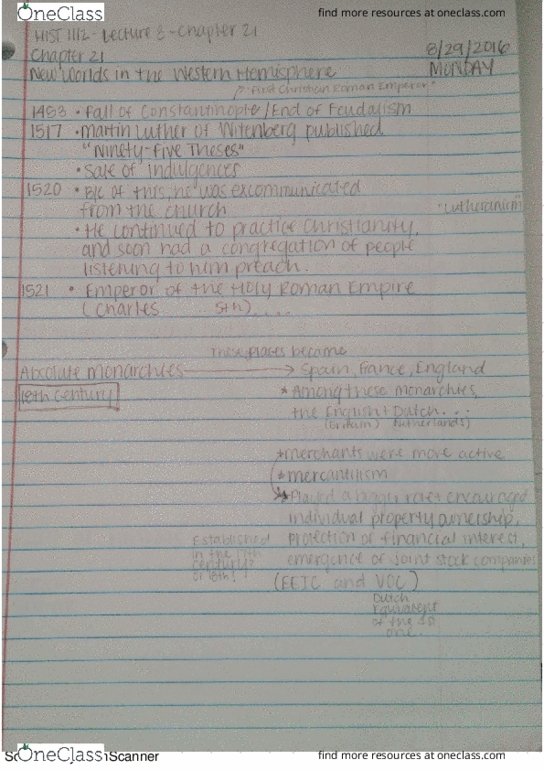 OneClass
find more resources at oneclass.com
HIST 1112 - Lecture 3 - Chapter 21
Chapter 21
8/29/2016
New Worlds in the Western Hemisphere
MONDAY
"First Christian Roman Emperor"
1453 • Fall of Constantinople/End of Feudalism
1517 • Martin Luther of Witenberg published
"Ninety-Five Theses"
• Sale of Indulgences
1520 • B/c of this, he was excommunicated
from the church
"Lutheranism"
• He continued to practice Christianity,
and soon had a congregation of people
listening to him preach.
1521 • Emperor of the Holy Roman Empire
(Charles 5th) ....
These places became
Absolute monarchies → Spain, France, England
18th Century
* Among these monarchies,
the English + Dutch...
(Britain) (Netherlands)
* merchants were more active
* mercantilism
Played a bigger role & encouraged
individual property ownership,
Established
protection of financial interest,
in the 17th
emergence of joint stock companies
century?
or 18th?
(EEIC and VOC)
Dutch
equivalent
of the
one
OneClass
Scanner
find more resources at oneclass.com